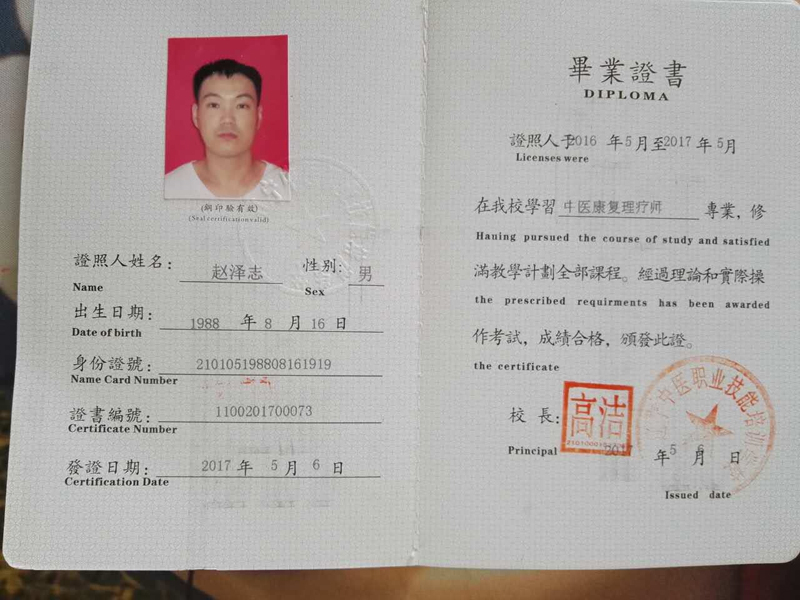 (鋼印驗有效)
(Seal cerrification valid)
證照人姓名：赵泽志 性别：男
Name Sex
出生日期：1988 年 8 月 16 日
Date of birth
身份證號：210105198808161919
Name Card Number
證書編號：1100201700073
Certificate Number
發證日期：2017 年 5 月 6 日
Certification Date
畢業證書
DIPLOMA
證照人于2016 年 5 月至2017 年 5 月
Licenses were
在我校學習 中医康复理疗师 專業，修
Hauing pursued the course of study and satisfied
滿教學計劃全部課程。經過理論和實際操
the prescribed requirments has been awarded
作考試，成績合格，頒發此證。
the certificate
校長：高洁
Principal 2017 年 5 月 6 日
Issued date
中医职业技能培训